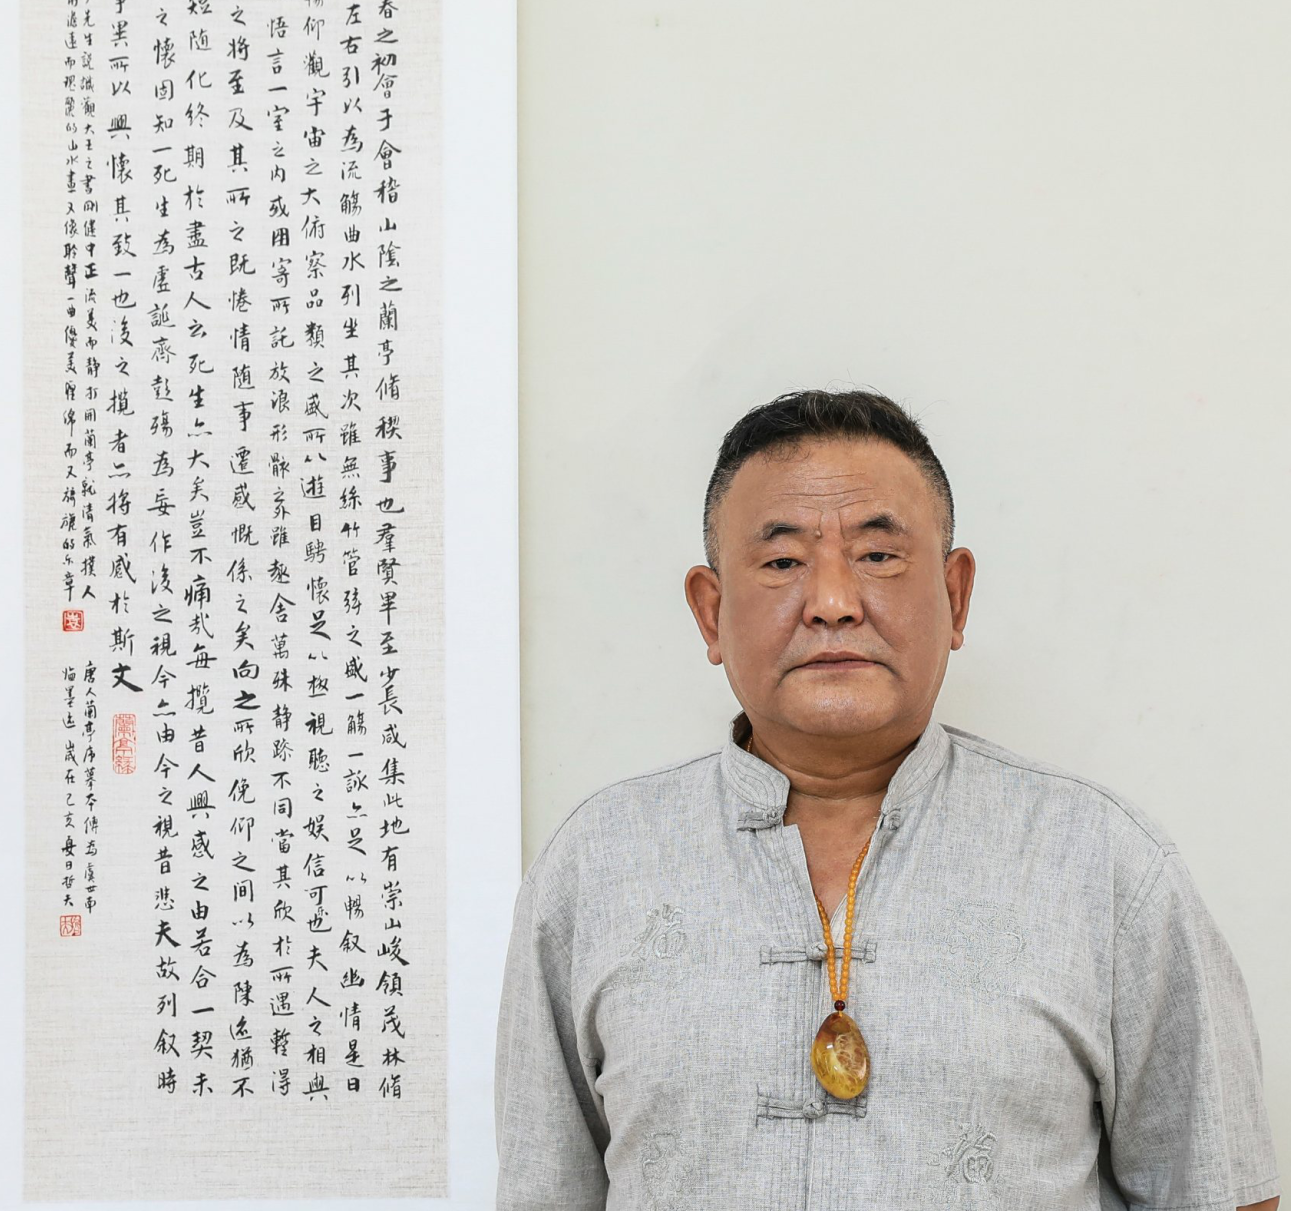 春之初會于會稽山陰之蘭亭脩稧事也羣賢畢至少長咸集此地有崇山峻領茂林脩
左右引以為流觴曲水列坐其次雖無絲竹管弦之盛一觴一詠亦足以暢叙幽情是日
暢仰觀宇宙之大俯察品類之盛所以遊目騁懷足以極視聽之娛信可也夫人之相與
悟言一室之内或因寄所託放浪形骸之外雖趣舍萬殊静躁不同當其欣於所遇蹔得
之將至及其所之既惓情随事遷感慨係之矣向之所欣俛仰之間以為陳迹猶不
短随化終期於盡古人云死生亦大矣豈不痛哉每攬昔人興感之由若合一契未
之懷固知一死生為虛誕齊彭殤為妄作後之視今亦由今之視昔悲夫故列叙時
事異所以興懷其致一也後之攬者亦將有感於斯文
先生説識觀大王之書剛健中正流美而静打開蘭亭就清氣撲人
而瑰麗的山水畫又像聆聲一曲優美纏綿而又旖旎的乐章
唐人蘭亭序摹本傳為虞世南
臨墨迹歲在己亥夏日哲夫
福
福